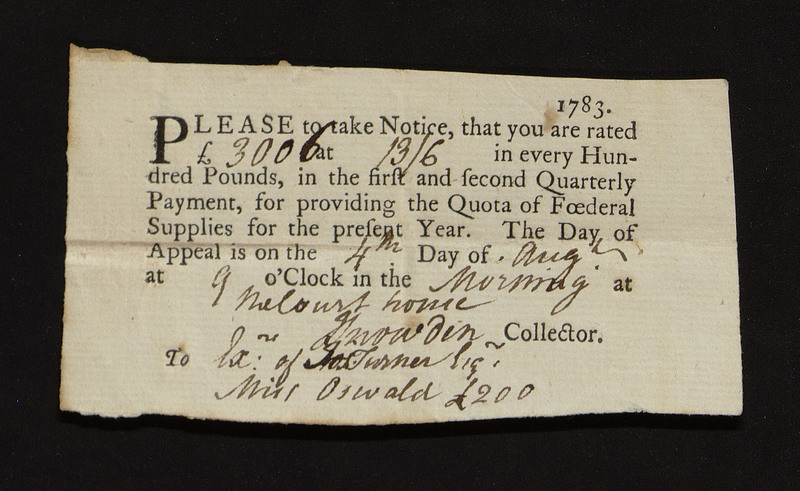 1783.
PLEASE to take Notice, that you are rated
£ 3006 at 13/6 in every Hun-
dred Pounds, in the firſt and ſecond Quarterly
Payment, for providing the Quota of Fœderal
Supplies for the preſent Year. The Day of
Appeal is on the 4th Day of Augt
at 9 o'Clock in the Morning at
the Court house
Snowden Collector.
To Exrs of Jos Turner Esqr
Miss Oswald £200